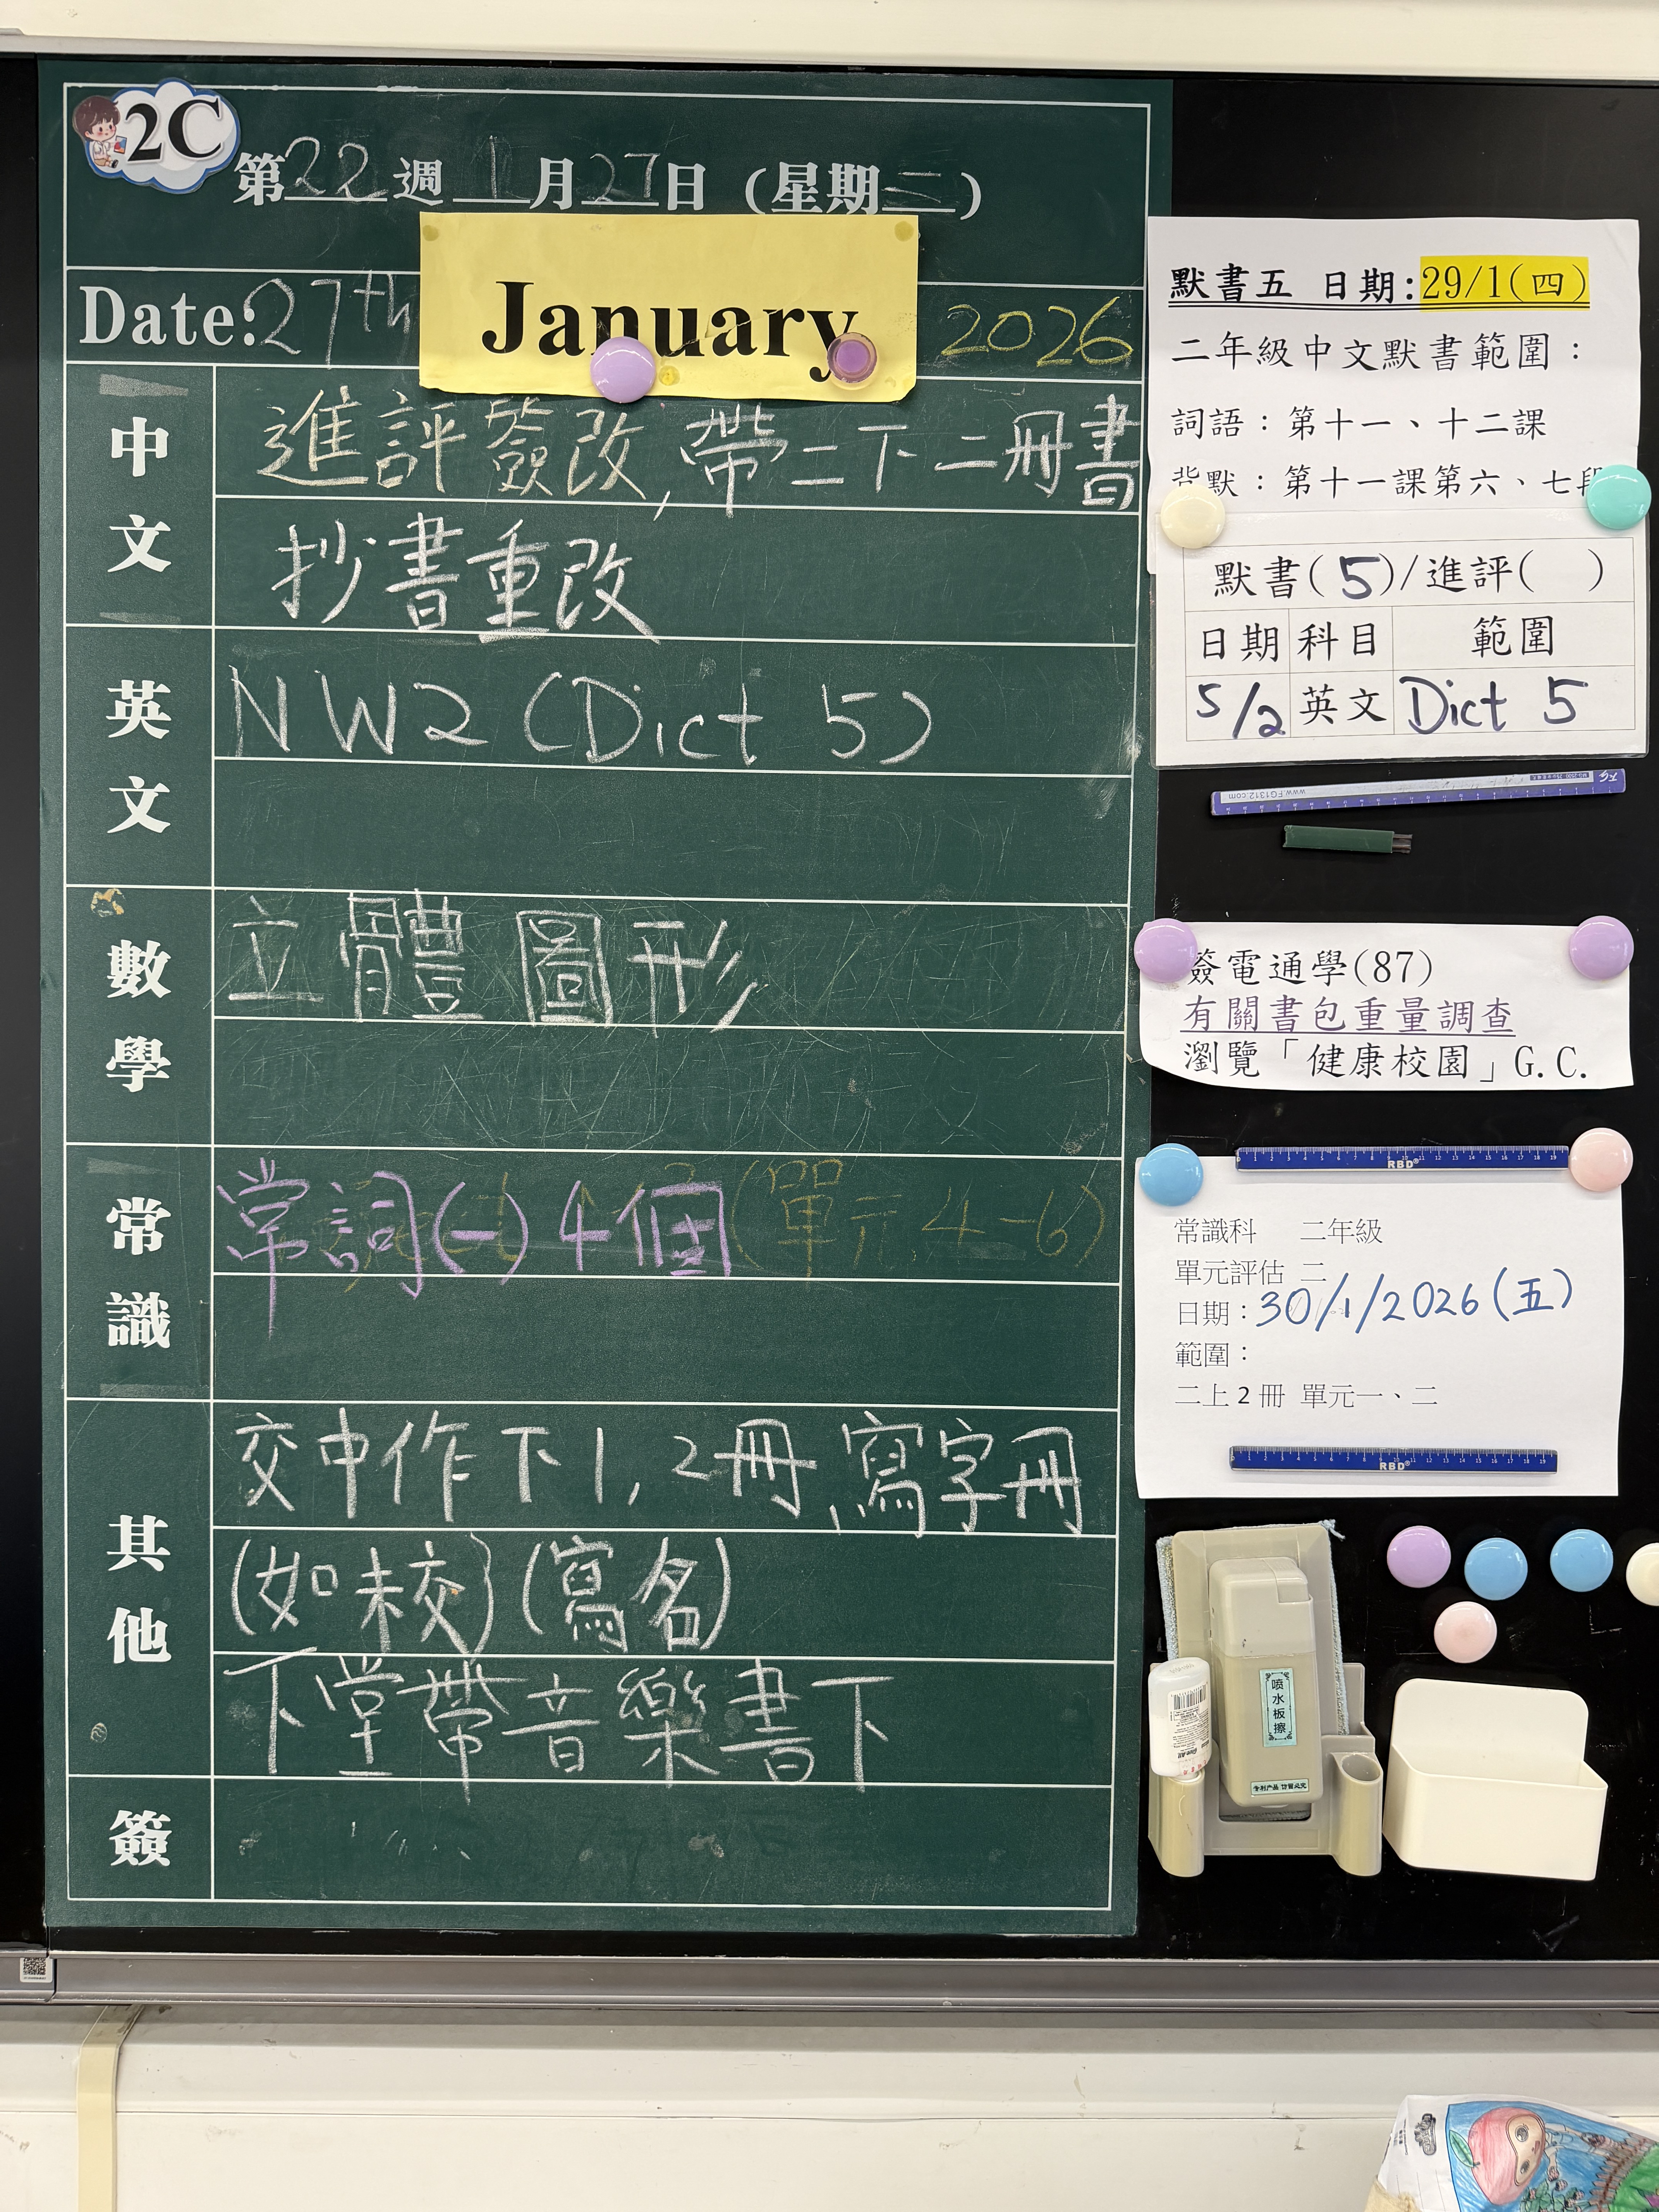 2C
第22週 1月27日 (星期二)
Date: 27th January 2026
中文
進評簽改, 帶二下二冊書
抄書重改
英文
NW2 (Dict 5)
數學
立體圖形
常識
常詞(一) 4個 (單元 4-6)
其他
交中作下1, 2冊, 寫字冊
(如未交) (寫名)
下堂帶音樂書下
簽
默書五 日期:29/1(四)
二年級中文默書範圍：
詞語：第十一、十二課
背默：第十一課第六、七段
默書(5)/進評( )
日期 科目 範圍
5/2 英文 Dict 5
www.FG1312.com
簽電通學(87)
有關書包重量調查
瀏覽「健康校園」G.C.
RBD®
常識科 二年級
單元評估 二
日期：30/1/2026(五)
範圍：
二上2冊 單元一、二
RBD®
喷水板擦
专利产品 仿冒必究